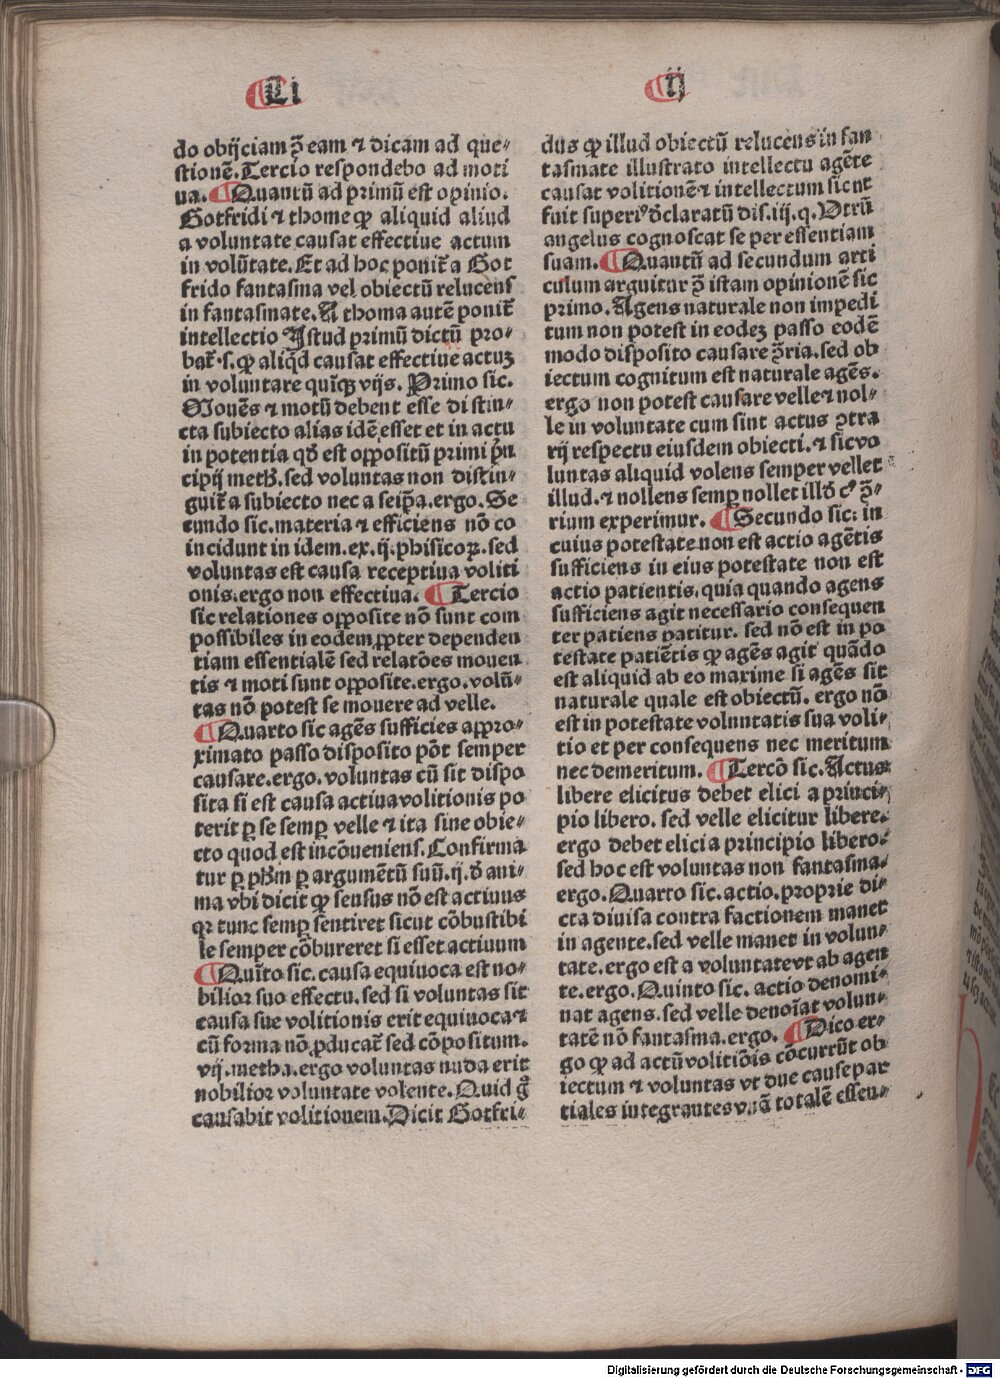 Li
ij
do obijciam ꝯ̃ eam ⁊ dicam ad que⸗
stionē. Tercio respondebo ad moti
ua. ¶ Quantū ad primū est opinio.
Gotfridi ⁊ thome ꝙ aliquid aliud
a voluntate causat effectiue actum
in volūtate. Et ad hoc ponit̃ a Got
frido fantasma vel obiectū relucens
in fantasmate. A thoma autē ponit̃
intellectio Istud primū dictū pro⸗
bat̃ .s. ꝙ aliq̇d causat effectiue actuꝫ
in voluntare quīqꝫ vijs. Primo sic.
Mouēs ⁊ motū debent esse distin⸗
cta subiecto alias idē esset et in actu
in potentia qḋ est oppositū primi p̄n
cipij metħ. sed voluntas non distin⸗
guit̃ a subiecto nec a seip̄a. ergo. Se
cundo sic. materia ⁊ efficiens nō co
incidunt in idem. ex .ij. phisicoꝝ. sed
voluntas est causa receptiua voliti
onis. ergo non effectiua. ¶ Tercio
sic relationes opposite nō sunt com
possibiles in eodem ꝓpter dependen
tiam essentialē sed relatōes mouen
tis ⁊ moti sunt opposite. ergo. volū⸗
tas nō potest se mouere ad velle.
¶ Quarto sic agēs sufficiēs appro⸗
ximato passo disposito pōt semper
causare. ergo. voluntas cū sit dispo
sita si est causa actiua volitionis po
terit ꝑ se semꝑ velle ⁊ ita sine obie⸗
cto quod est incōueniens. Confirma
tur ꝑ pħm ꝑ argumētū suū .ij. ḋ ani⸗
ma vbi dicit ꝙ sensus nō est actiuus
qꝛ tunc semꝑ sentiret sicut cōbustibi
le semper cōbureret si esset actiuum
¶ Quīto sic. causa equiuoca est no⸗
bilior suo effectu. sed si voluntas sit
causa sue volitionis erit equiuoca ⁊
cū forma nō ꝓducat̃ sed cōpositum.
vij. metha. ergo voluntas nuda erit
nobilior voluntate volente. Quid gͦ
causabit volitionem. Dicit Gotfri⸗
dus ꝙ illud obiectū relucens in fan
tasmate illustrato intellectu agēte
causat volitionē ⁊ intellectum sicut
fuit superiꝰ ḋclaratū dis. iij. q. Vtrū
angelus cognoscat se per essentiam
suam. ¶ Quantū ad secundum arti
culum arguitur ꝯ̃ istam opinionē sic
primo. Agens naturale non impedi
tum non potest in eodeꝫ passo eodē
modo disposito causare ꝯ̃ria. sed ob
iectum cognitum est naturale agēs.
ergo non potest causare velle ⁊ nol⸗
le in voluntate cum sint actus ꝯtra
rij respectu eiusdem obiecti. ⁊ sic vo
luntas aliquid volens semper vellet
illud. ⁊ nollens semꝑ nollet illḋ cꝰ ꝯ̃⸗
rium experimur. ¶ Secundo sic: in
cuius potestate non est actio agētis
sufficiens in eius potestate non est
actio patientis. quia quando agens
sufficiens agit necessario consequen
ter patiens patitur. sed nō est in po
testate patiētis ꝙ agēs agit quādo
est aliquid ab eo maxime si agēs sit
naturale quale est obiectū. ergo nō
est in potestate voluntatis sua voli⸗
tio et per consequens nec meritum
nec demeritum. ¶ Tercō sic. Actus
libere elicitus debet elici a princi⸗
pio libero. sed velle elicitur libere.
ergo debet elici a principio libero:
sed hoc est voluntas non fantasma.
ergo. Quarto sic. actio. proprie di⸗
cta diuisa contra factionem manet
in agente. sed velle manet in volun⸗
tate. ergo est a voluntate vt ab agen
te. ergo. Quinto sic. actio denomi⸗
nat agens. sed velle denoīat volun⸗
tatē nō fantasma. ergo. ¶ Dico er⸗
go ꝙ ad actū volitiōis cōcurrūt ob
iectum ⁊ voluntas vt due cause par
tiales integrantes vnā totalē essen⸗
Digitalisierung gefördert durch die Deutsche Forschungsgemeinschaft - DFG